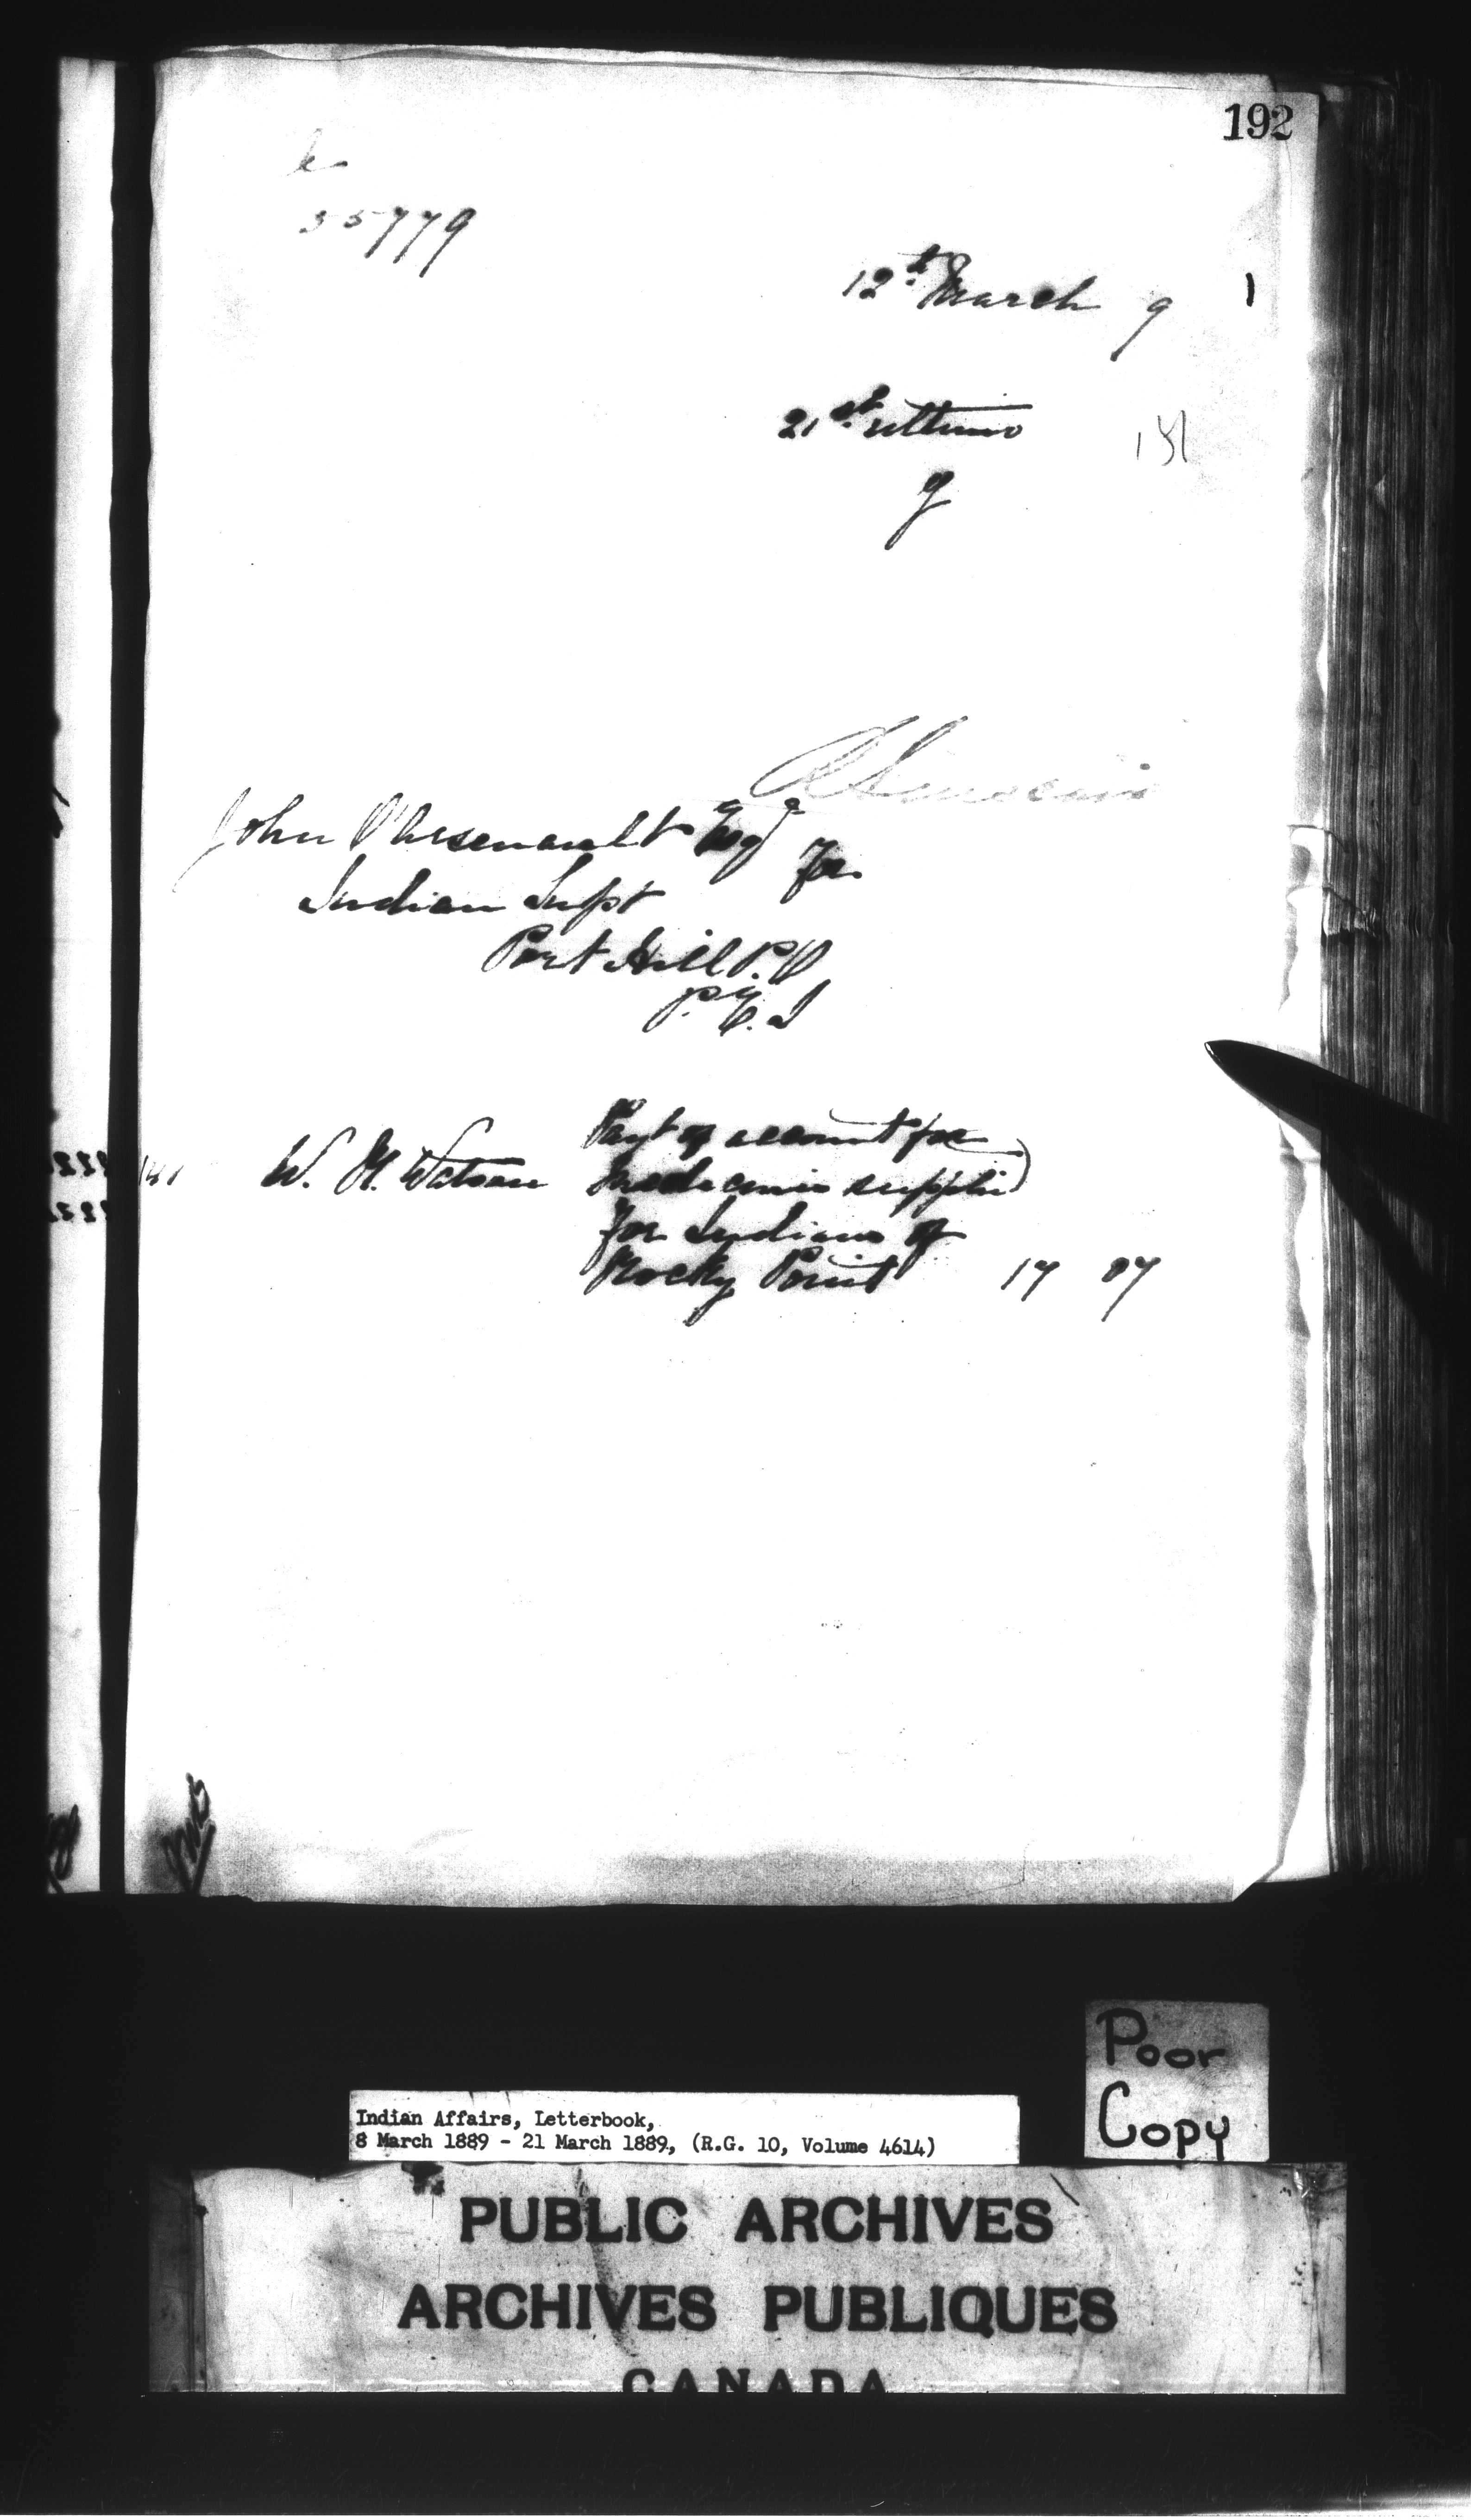 192
55779
12th March 9
1
21st ultimo
9
R Sinclair
John O Arsenault Esq
for
Indian Supt
Port Hill P.O
P.E.I
141 W. H. Watson Payt of account for
medicines supplied
for Indians of
Rocky Point 17 07
Poor
Copy
Indian Affairs, Letterbook,
8 March 1889 - 21 March 1889, (R.G. 10, Volume 4614)
PUBLIC ARCHIVES
ARCHIVES PUBLIQUES
CANADA